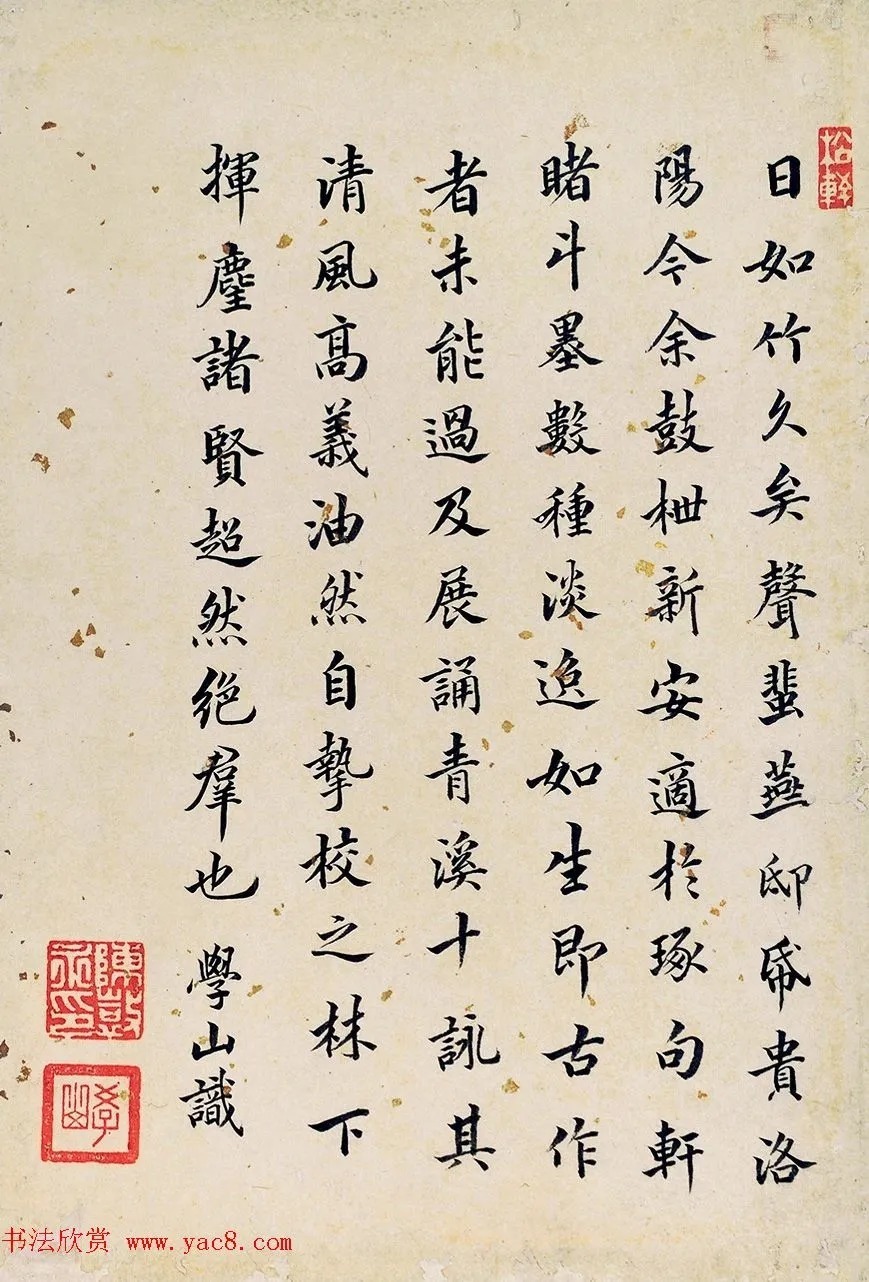 日如竹久矣聲蜚燕邸帋貴洛
陽今余鼓枻新安適於琢句軒
睹斗墨數種淡逸如生即古作
者未能過及展誦青溪十詠其
清風高義油然自摯校之林下
揮麈諸賢超然絶羣也 學山識
松軒
陳敱永印
學山
书法欣赏 www.yac8.com